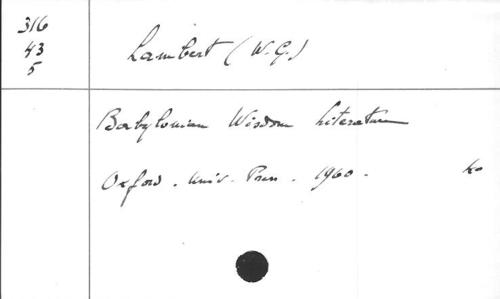 316
43
5
Lambert (W.G.)
Babylonian Wisdom Literature
Oxford. Univ. Press. 1960.